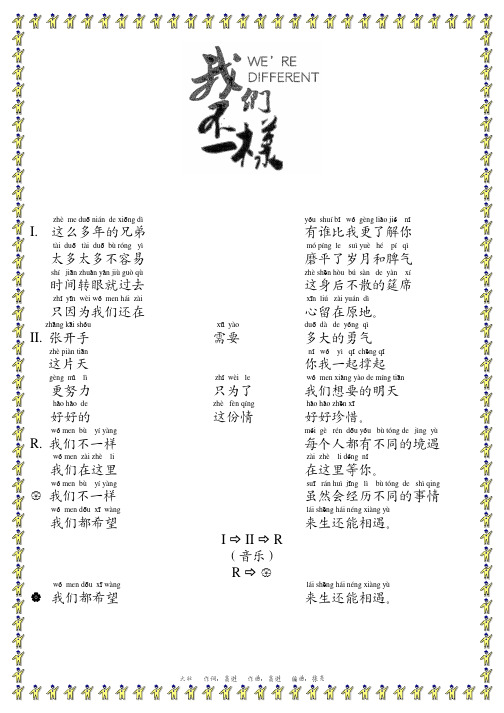 WE'RE
DIFFERENT
我们
不一樣
zhè me duō nián de xiōng dì yǒu shuí bǐ wǒ gèng liǎo jiě nǐ
I. 这么多年的兄弟 有谁比我更了解你
tài duō tài duō bù róng yì mó píng le suì yuè hé pí qì
太多太多不容易 磨平了岁月和脾气
shí jiān zhuǎn yǎn jiù guò qù zhè shēn hòu bú sàn de yàn xí
时间转眼就过去 这身后不散的筵席
zhǐ yīn wèi wǒ men hái zài xīn liú zài yuán dì
只因为我们还在 心留在原地。
zhāng kāi shǒu xū yào duō dà de yǒng qì
II. 张开手 需要 多大的勇气
zhè piàn tiān nǐ wǒ yì qǐ chēng qǐ
这片天 你我一起撑起
gèng nǔ lì zhǐ wèi le wǒ men xiǎng yào de míng tiān
更努力 只为了 我们想要的明天
hǎo hǎo de zhè fèn qíng hǎo hǎo zhēn xī
好好的 这份情 好好珍惜。
wǒ men bù yí yàng měi gè rén dōu yǒu bù tóng de jìng yù
R. 我们不一样 每个人都有不同的境遇
wǒ men zài zhè lǐ zài zhè lǐ děng nǐ
我们在这里 在这里等你。
wǒ men bù yí yàng suī rán huì jīng lì bù tóng de shì qing
我们不一样 虽然会经历不同的事情
wǒ men dōu xī wàng lái shēng hái néng xiāng yù
我们都希望 来生还能相遇。
I ⇨ II ⇨ R
（音乐）
R ⇨
wǒ men dōu xī wàng lái shēng hái néng xiāng yù
我们都希望 来生还能相遇。
大壮 作词：高进 作曲：高进 编曲：张亮